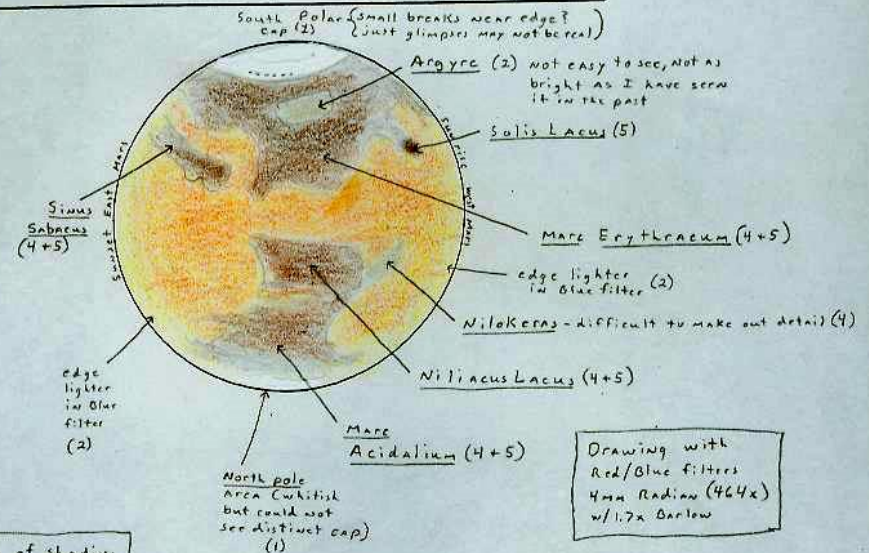 South Polar {small breaks near edge?
cap (1) {just glimpses may not be real)
Argyre (2) not easy to see, not as
bright as I have seen
it in the past
Solis Lacus (5)
Sunset East Mars
Sunrise West Mars
Sinus
Sabaeus
(4+5)
Mare Erythraeum (4+5)
edge lighter
in Blue filter (2)
Nilokeras - difficult to make out detail (4)
edge
lighter
in Blue
filter
(2)
Niliacus Lacus (4+5)
Mare
Acidalium (4+5)
North pole
area (whitish
but could not
see distinct cap)
(1)
Drawing with
Red/Blue filters
4mm Radian (464x)
w/1.7x Barlow
of shading